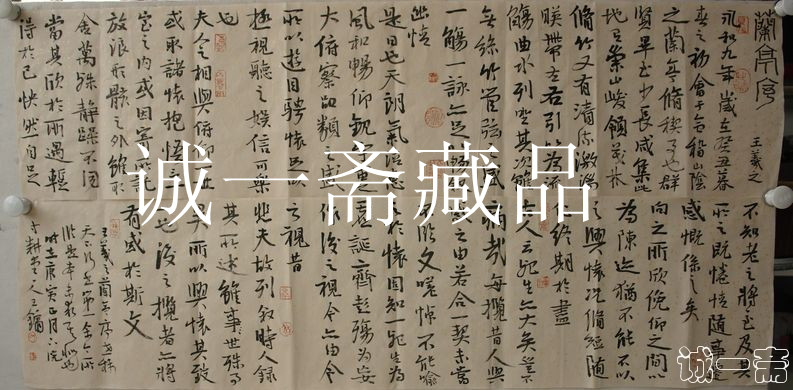 蘭亭序
王羲之
永和九年歲在癸丑暮
春之初會于會稽山陰
之蘭亭脩禊事也群
賢畢至少長咸集此
地有崇山峻領茂林
脩竹又有清流激湍
映帶左右引以為流
觴曲水列坐其次雖
無絲竹管弦之盛
一觴一詠亦足以暢敘
幽情
是日也天朗氣清惠
風和暢仰觀宇宙之
大俯察品類之盛
所以遊目騁懷足以
極視聽之娛信可樂
也
夫人之相與俯仰一世
或取諸懷抱悟言一
室之內或因寄所託
放浪形骸之外雖趣
舍萬殊靜躁不同
當其欣於所遇輊
得於己快然自足
不知老之將至及其
所之既惓情隨事遷
感慨係之矣
向之所欣俛仰之間以
為陳迹猶不能不以
之興懷況脩短隨
化終期於盡
古人云死生亦大矣豈
不痛哉每攬昔人興
感之由若合一契未嘗
不臨文嗟悼不能喻
之於懷固知一死生為
虛誕齊彭殤為妄
作後之視今亦由今
之視昔
悲夫故列敘時人錄
其所述雖事世殊
異所以興懷其致
一也後之攬者亦將
有感於斯文
王羲之蘭亭序
時在庚寅正月
诚一斋藏品
诚一斋